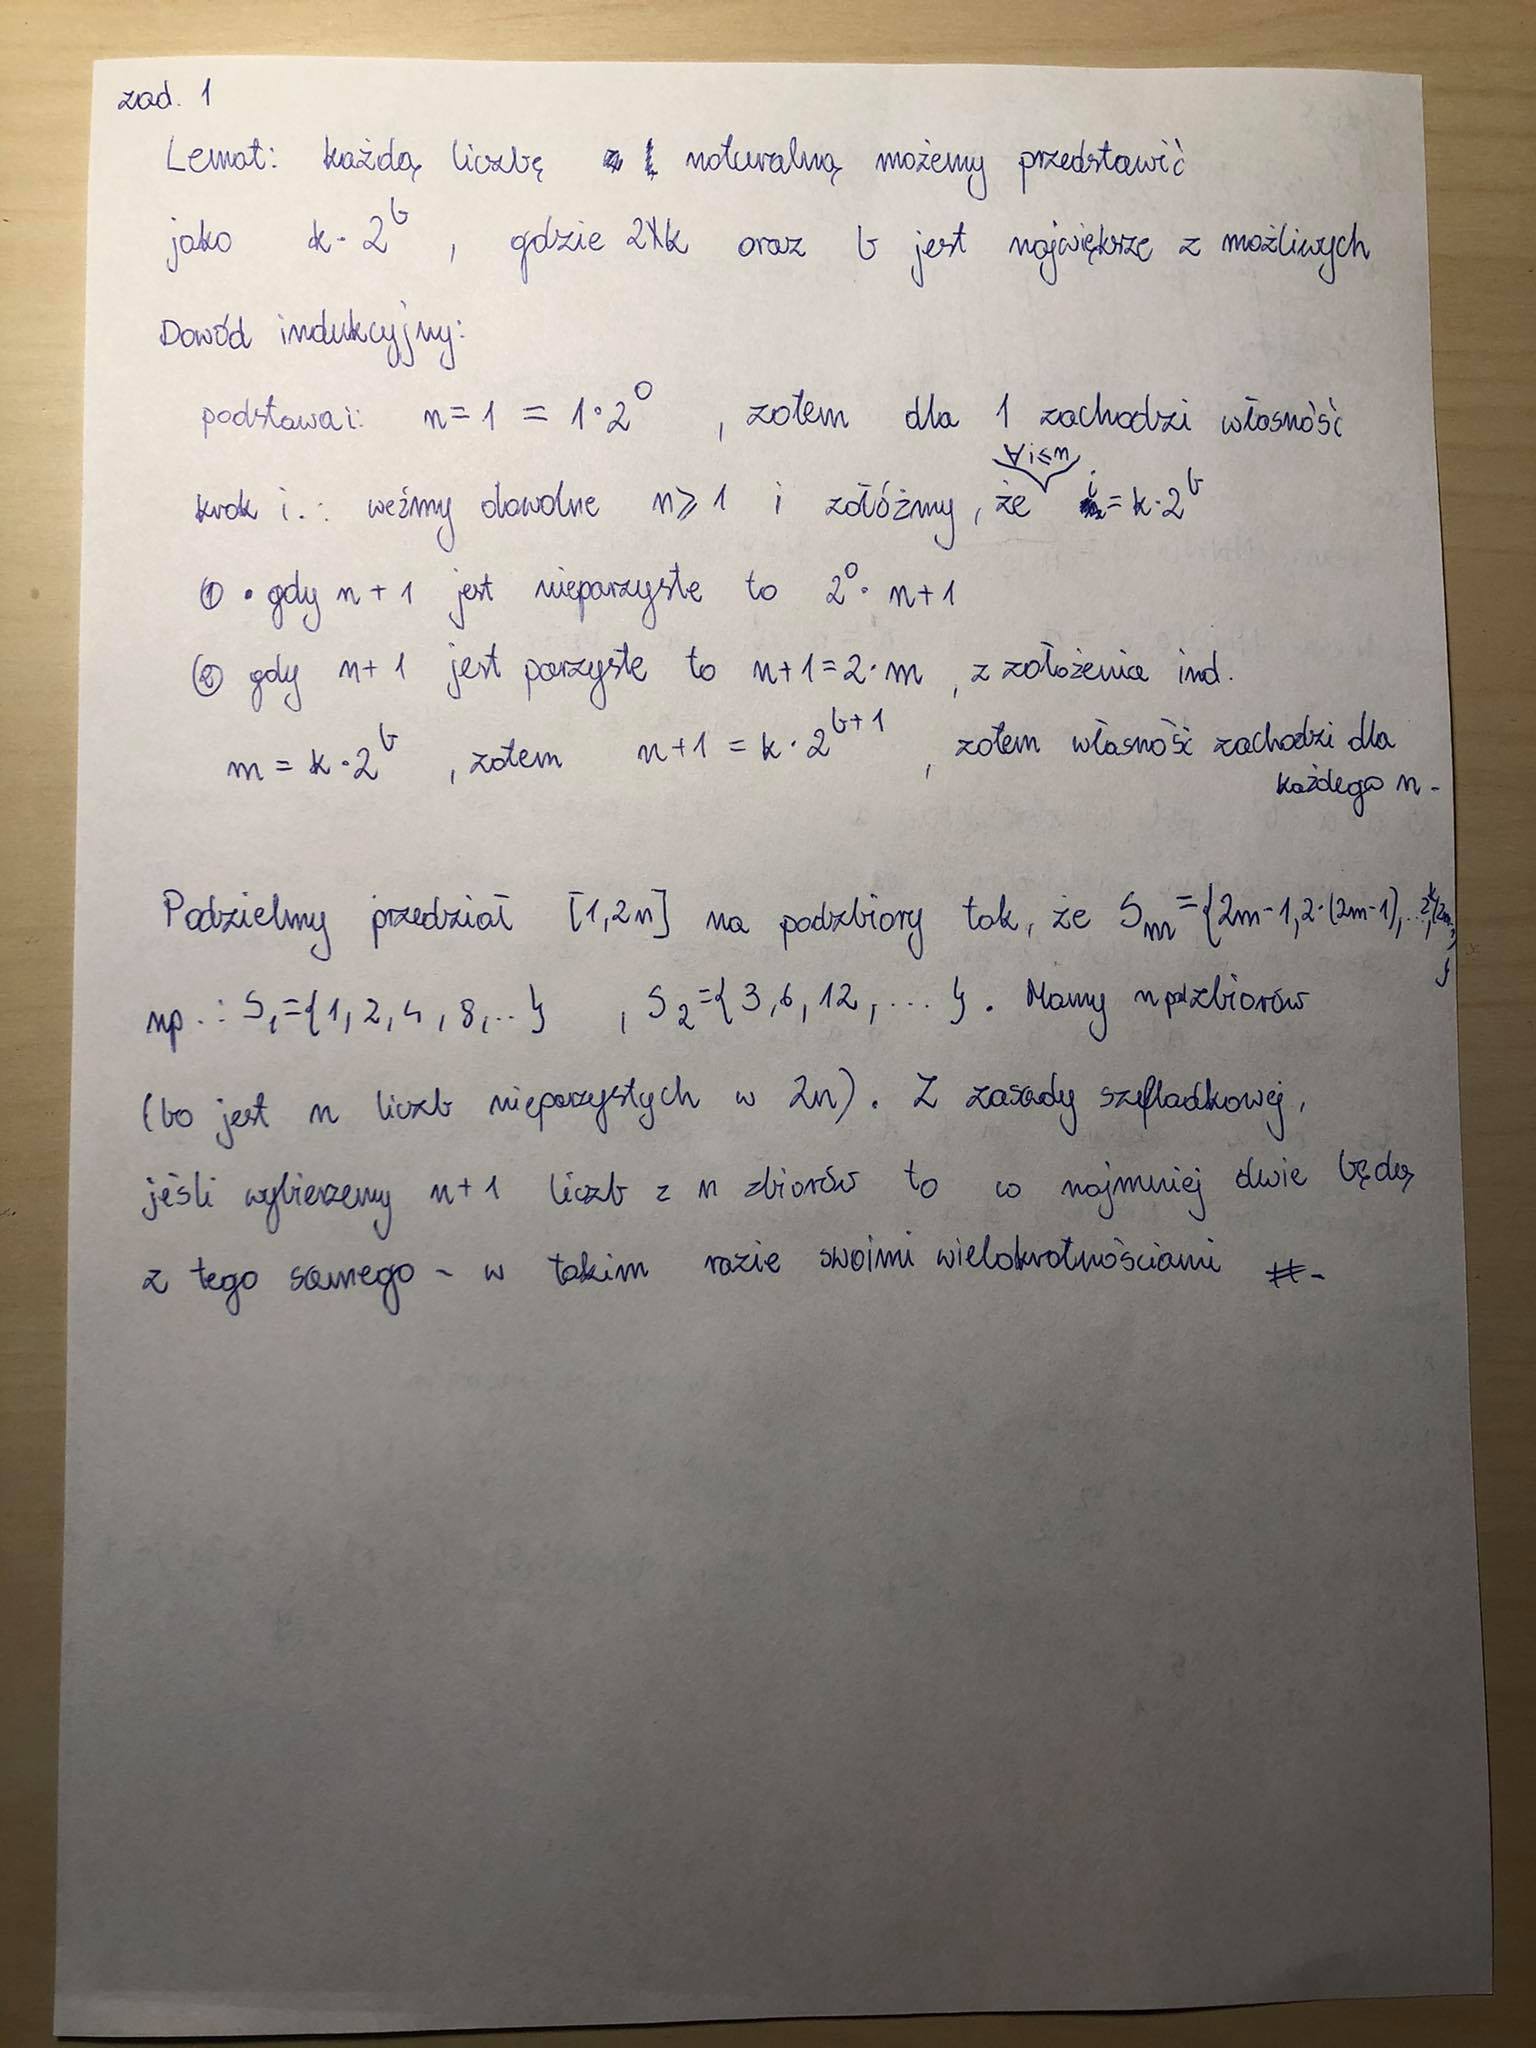 zad. 1
Lemat: każdą liczbę naturalną możemy przedstawić
jako k · 2^b , gdzie 2∤k oraz b jest największe z możliwych
Dowód indukcyjny:
podstawa i: n = 1 = 1 · 2^0 , zatem dla 1 zachodzi własność
krok i.: weźmy dowolne n ⩾ 1 i załóżmy, że ∀i⩽n i = k · 2^b
① • gdy n + 1 jest nieparzyste to 2^0 · n + 1
② gdy n + 1 jest parzyste to n + 1 = 2 · m , z założenia ind.
m = k · 2^b , zatem n + 1 = k · 2^{b+1} , zatem własność zachodzi dla
każdego n.
Podzielmy przedział [1, 2n] na podzbiory tak, że S_m = {2m-1, 2·(2m-1), ... 2^k(2m-1)}
np.: S_1 = {1, 2, 4, 8, ... } , S_2 = {3, 6, 12, ... } . Mamy n podzbiorów
(bo jest n liczb nieparzystych w 2n). Z zasady szufladkowej,
jeśli wybierzemy n+1 liczb z n zbiorów to co najmniej dwie będą
z tego samego - w takim razie swoimi wielokrotnościami #.